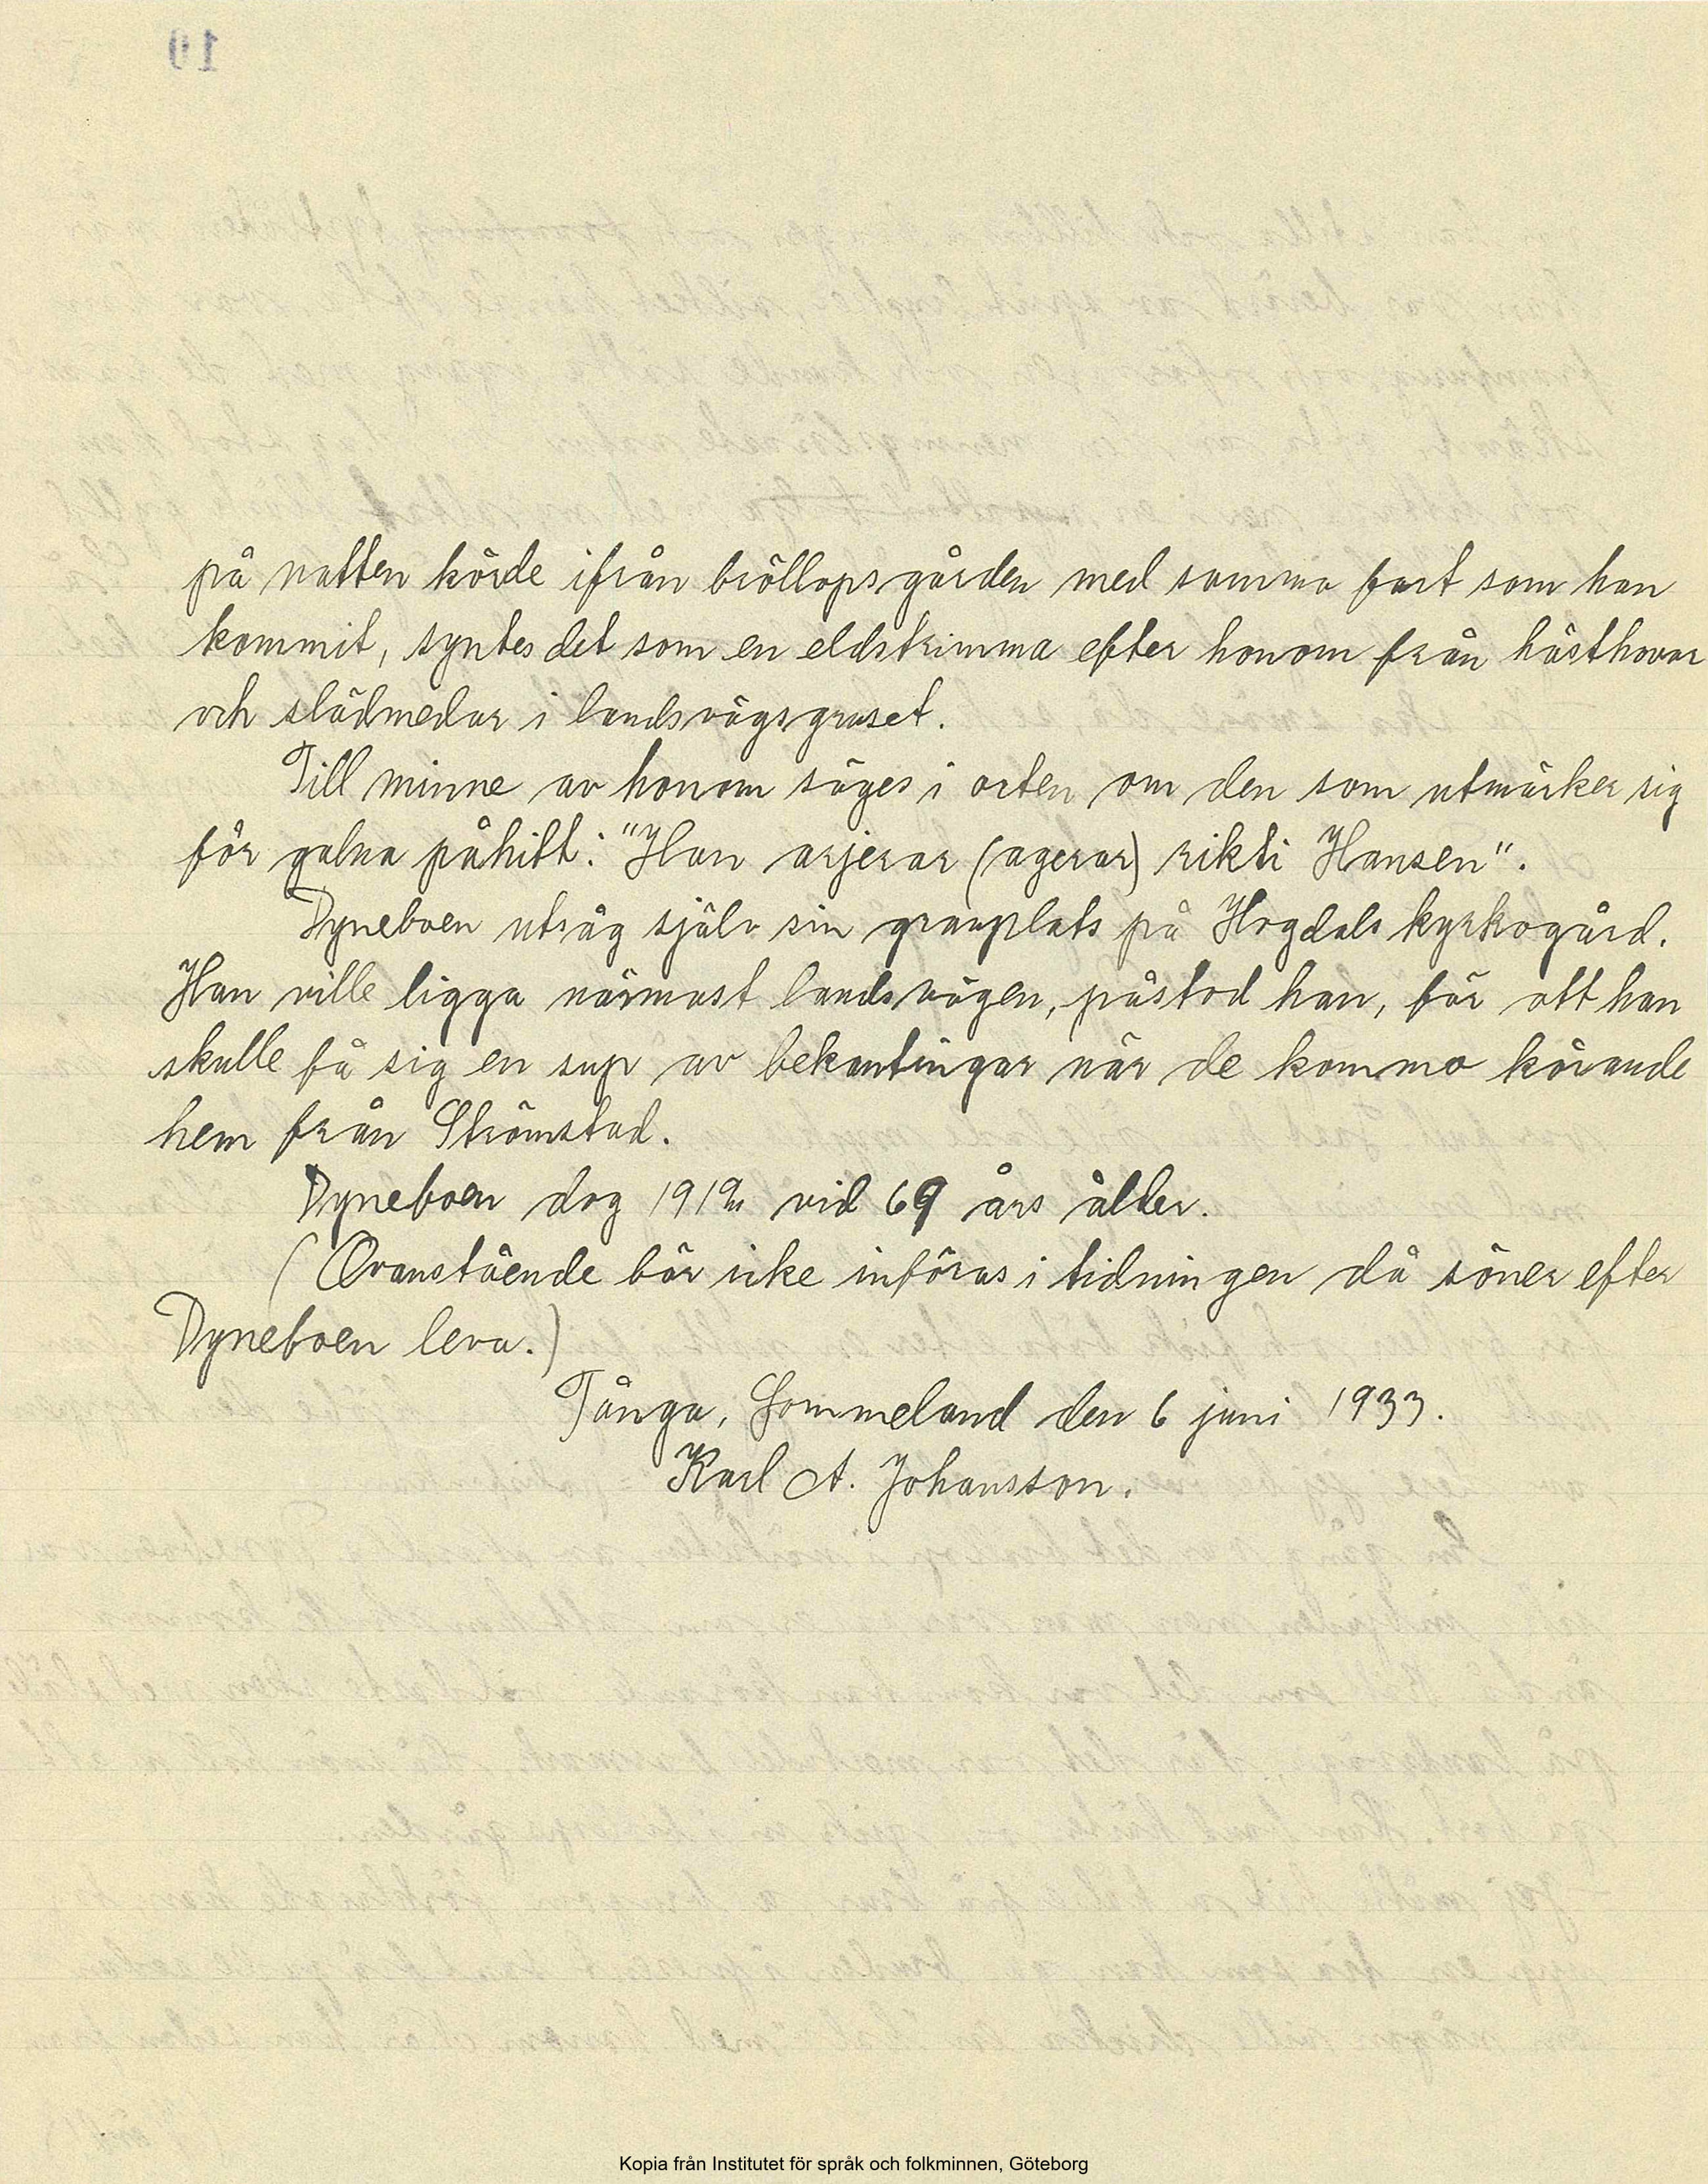 på natten körde ifrån bröllopsgården med samma fart som han
kommit, syntes det som en eldstrimma efter honom från hästhovar
och slädmedar i landsvägsgruset.
Till minne av honom säges i orten om den som utmärker sig
för galna påhitt: "Han arjerar (agerar) rikti Hansen".
Dyneboen utsåg själv sin gravplats på Hogdals kyrkogård.
Han ville ligga närmast landsvägen, påstod han, för att han
skulle få sig en sup av bekantingar när de kommo körande
hem från Strömstad.
Dyneboen dog vid 69 års ålder.
(Ovanstående bör icke införas i tidningen då söner efter
Dyneboen leva.)
Tånga, Lommeland den 6 juni 1933.
Karl A. Johansson.
Kopia från Institutet för språk och folkminnen, Göteborg